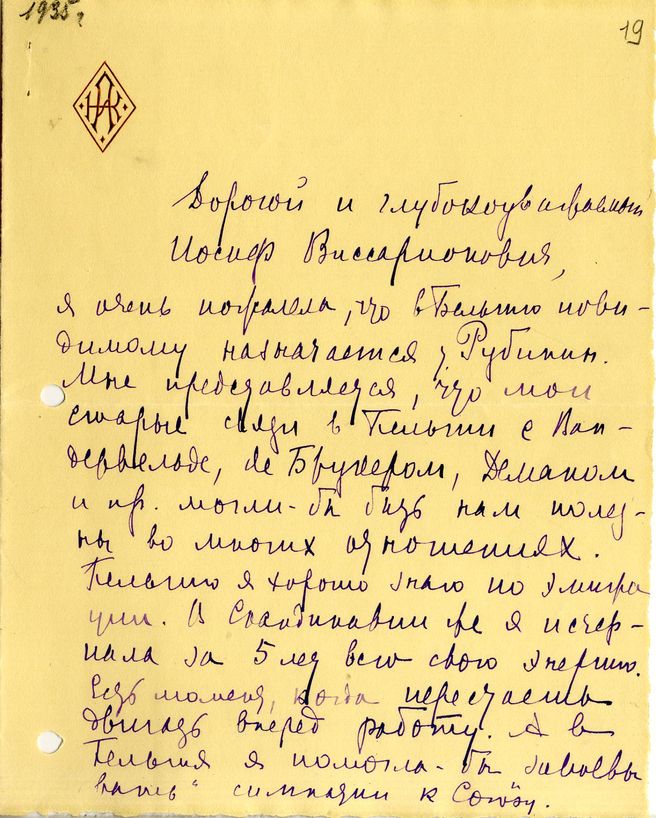 1935 г.
19
НАК
Дорогой и глубокоуважаемый
Иосиф Виссарионович,
я очень пожалела, что в Бельгию пови-
димому назначается т. Рубинин.
Мне представляется, что мои
старые связи в Бельгии с Ван-
дервельде, де Брукером, Деманом
и пр. могли-бы быть нам полез-
ны во многих отношениях.
Бельгию я хорошо знаю по эмигра
ции. В Скандинавии же я исчер-
пала за 5 лет всю свою энергию.
Есть момент, когда перестаешь
двигать вперед работу. А в
Бельгии я помогла-бы завоевы
вать" симпатии к Союзу.